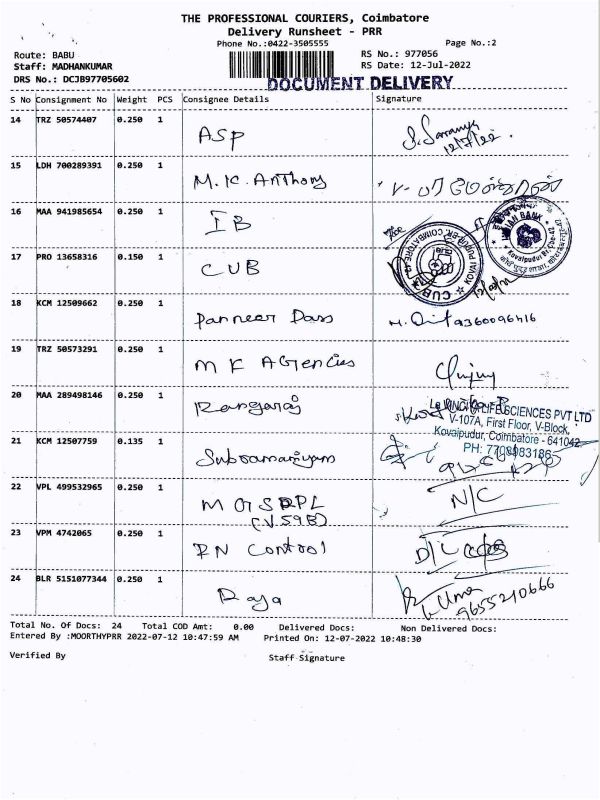 THE PROFESSIONAL COURIERS, Coimbatore
Delivery Runsheet - PRR
Phone No.:0422-3505555 Page No.:2
Route: BABU RS No.: 977056
Staff: MADHANKUMAR RS Date: 12-Jul-2022
DRS No.: DCJB97705602 DOCUMENT DELIVERY
S No Consignment No Weight PCS Consignee Details Signature
14 TRZ 50574407 0.250 1 ASP S. Saranya
12/7/22.
15 LDH 700289391 0.250 1 M.K. Anthony
16 MAA 941985654 0.250 1 IB INDIAN BANK
17 PRO 13658316 0.150 1 CUB CUB
18 KCM 12509662 0.250 1 Panneer Dass 9360096416
19 TRZ 50573291 0.250 1 M K Agencies
20 MAA 289498146 0.250 1 Rangaraj
LIFE SCIENCES PVT LTD
V-107A, First Floor, V-Block,
Kovaipudur, Coimbatore - 641042
PH: 7708983186
21 KCM 12507759 0.135 1 Subramaniyam
22 VPL 499532965 0.250 1 N/C
(V.59B)
23 VPM 4742065 0.250 1 PN Control D/C
24 BLR 5151077344 0.250 1 Raja Uma
9655210666
Total No. Of Docs: 24 Total COD Amt: 0.00 Delivered Docs: Non Delivered Docs:
Entered By :MOORTHYPRR 2022-07-12 10:47:59 AM Printed On: 12-07-2022 10:48:30
Verified By Staff Signature